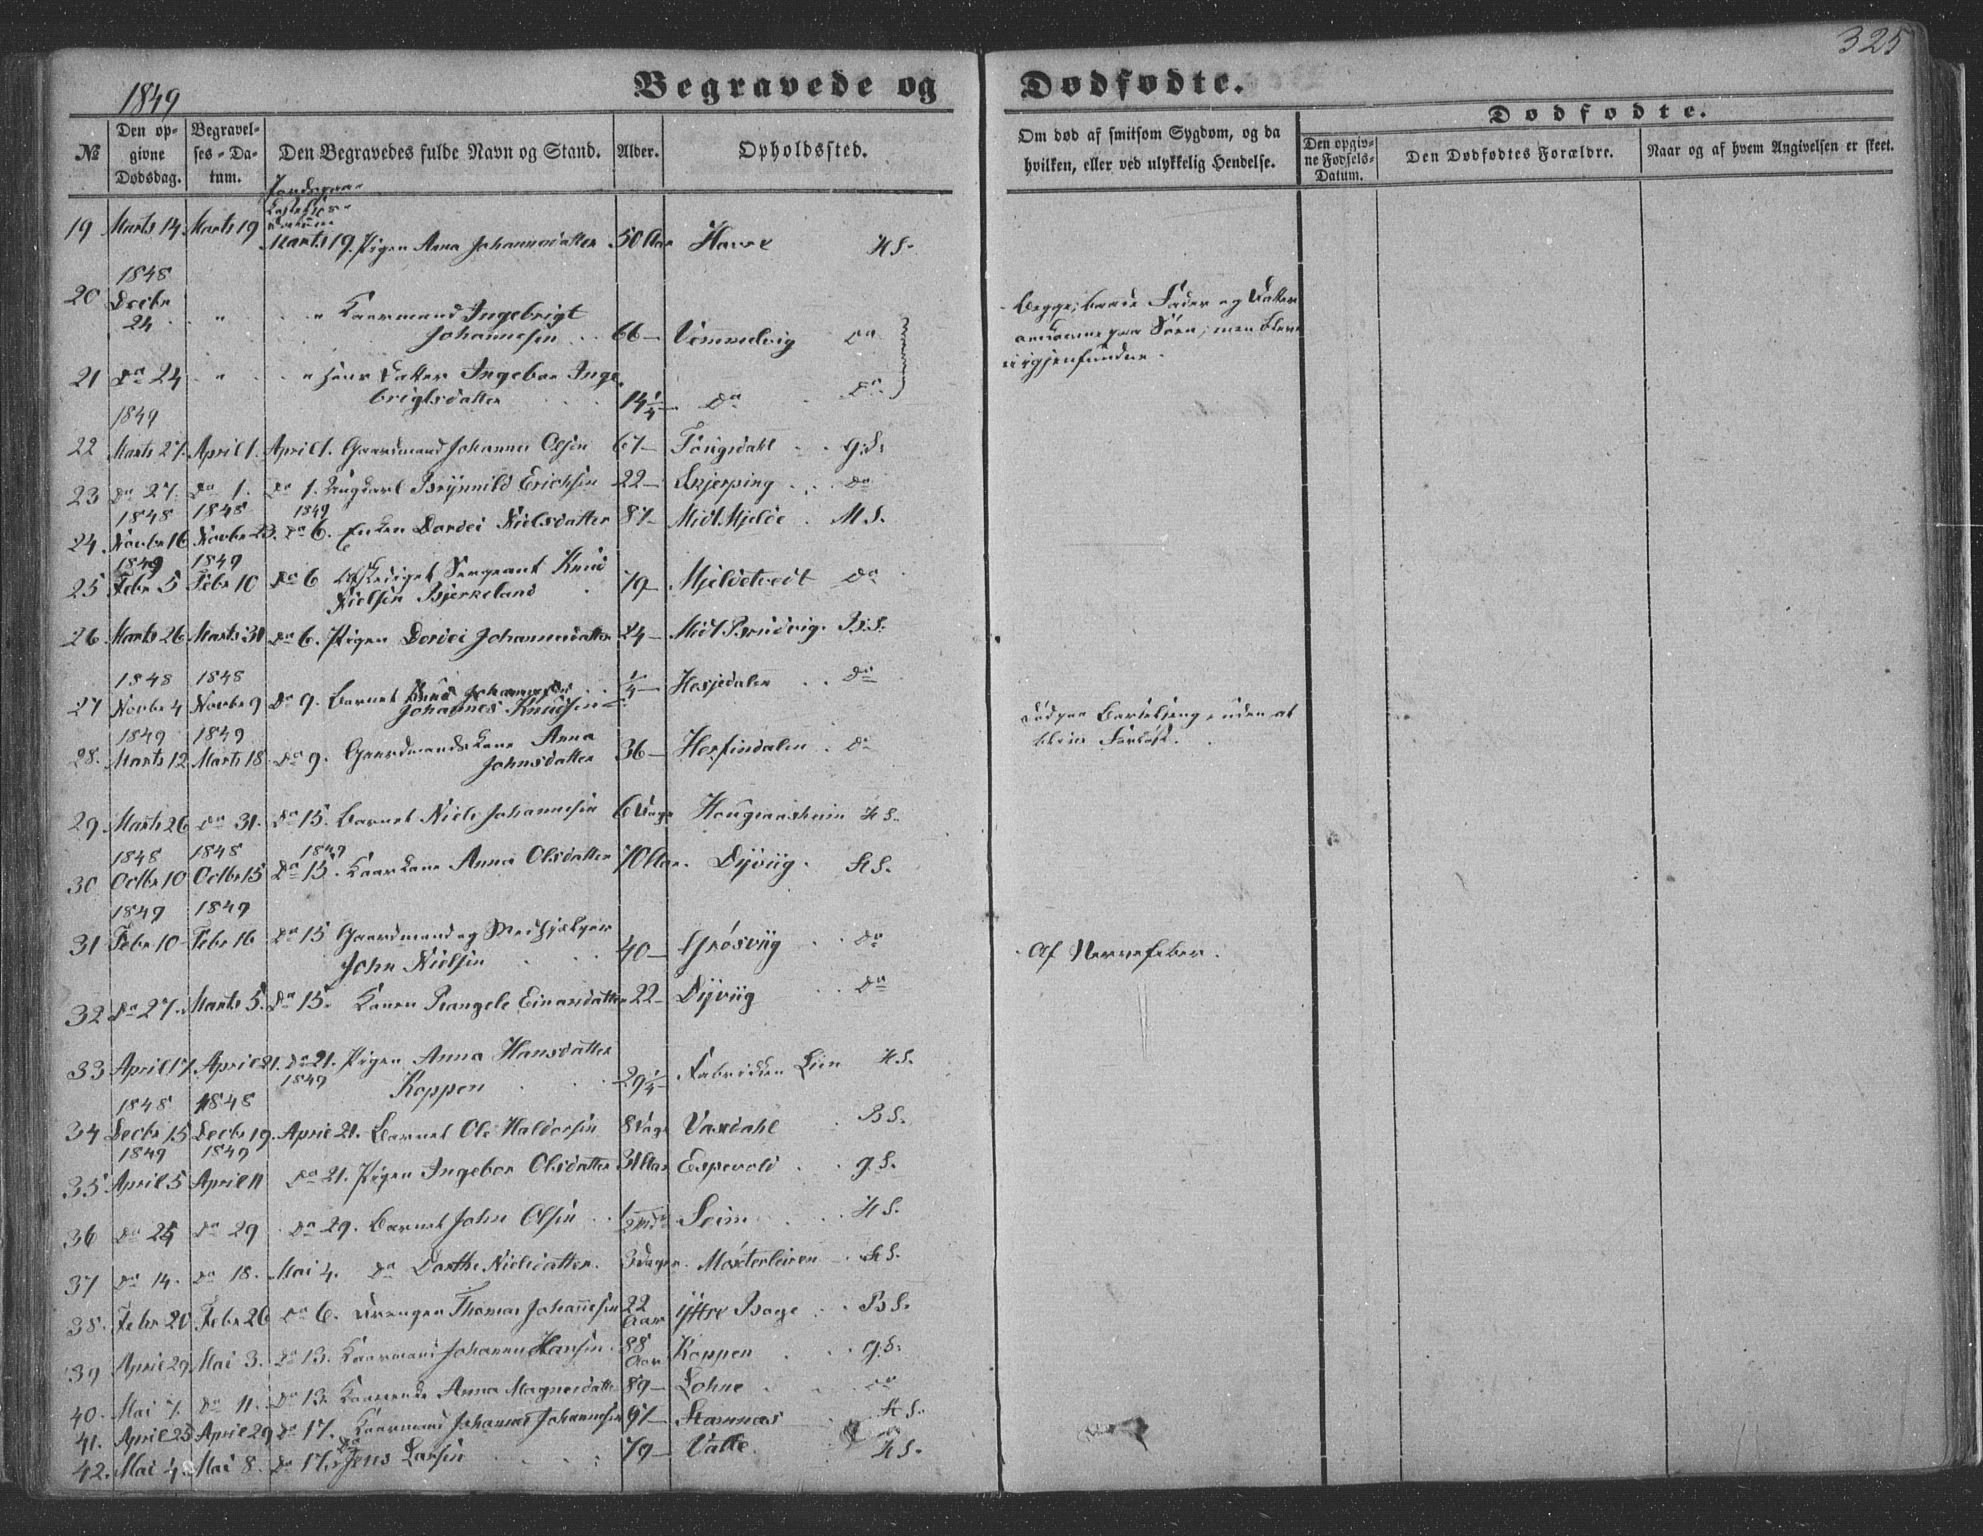 325
1849
Begravede og Dødfødte.
Dødfødte.
№
Den opgivne Dødsdag.
Begravelses-Datum.
Den Begravedes fulde Navn og Stand.
Alder.
Opholdssted.
Om død af smitsom Sygdom, og da hvilken, eller ved ulykkelig Hendelse.
Den opgivne Fødsels-Datum.
Den Dødfødtes Forældre.
Naar og af hvem Angivelsen er skeet.
19 Marts 14. Marts 19 Marts 19. Pigen Anna Johannesdatter 50 Aar Havre H S.
1848
20 Decbr 24 " " Kaarmand Ingebrigt
Johannesen 66 — Vemmelvig Do
Begge, baade Fader og Datter
omkomne paa Søen; men bleve
igjenfundne.
21 Do 24 " " hans Datter Ingebor Inge-
brigtsdatter 14 1/4 — Do Do
1849
22 Marts 27. April 1. April 1. Gaardmand Johannes Olsen 67 — Tougsdahl G.S.
23 Do 27. Do 1. Do 1. Ungkarl Brynnild Erichsen 22 — Skjerping Do
1848 1848 1849
24. Novbr 16 Novbr 23. Do 6. Enken Dordei Nielsdatter 87 — Midt Mjelde M S.
1849 1849
25 Febr 5 Febr 10 Do 6 Afskediget Sergeant Knud
Nielsen Bjerkeland 79 — Mjeldetvedt Do
26. Marts 26 Marts 31 Do 6. Pigen Dordei Johannesdatter 24 — Midt Brudvig. B.S.
1848 1848
27 Novbr 4 Novbr 9 Do 9. Barnet
Johannes Knudsen 1/4 — Hesjedalen Do
1849 1849
28. Marts 12 Marts 18 Do 9. Gaardmandskone Anna
Johnsdatter 36 — Herfindalen Do
Død paa Barselseng, uden at
blive Forløst.
29. Marts 26 Do 31. Do 15. Barnet Niels Johannesen 6 Dage H S.
1848 1848 1849
30 Octbr 10 Octbr 15 Do 15. Kaarkone Anna Olsdatter 70 Aar. Dyviig. H S.
1849 1849
31 Febr 10 Febr 16 Do 15 Gaardmand og Medhjelper
John Nielsen 40 — Do
Af Nervefeber.
32 Do 27. Marts 5. Do 15. Konen Rangele Einarsdatter 22 — Dyviig Do
33 April 17. April 21. Do 21. Pigen Anna Hansdatter
Koppen 29 1/4 — Fabrikken Lien H S.
1849
1848 1848
34 Decbr 15 Decbr 19. April 21. Barnet Ole Haldorsen 8 Dage Vaxdahl B S.
1849 1849
35 April 5 April 11 Do 21. Pigen Ingebor Olsdatter 31 Aar Espevold G.S.
36 Do 25 Do 29 Do 29. Barnet John Olsen Seim H S.
37 Do 14. Do 18. Mai 4. Do Dorthe Nielsdatter. 3 Dager. Mosterleiren H S.
38. Febr 20 Febr 26 Do 6. Drengen Thomas Johannesen 22 Aar Yttre Boge B S.
39 April 29 Mai 3. Do 13. Kaarmand Johannes Hansen 88 Aar Koppen G.S.
40. Mai 7. Do 11. Do 13. Anna Magnesdatter 89 — Lohne Do
41. April 23 April 29 Do 17. Kaarmand Johannes Johannesen 67 — Stamnæs H S.
42. Mai 4. Mai 8. Do 17. Do Jens Larsen 79 — Valle H S.